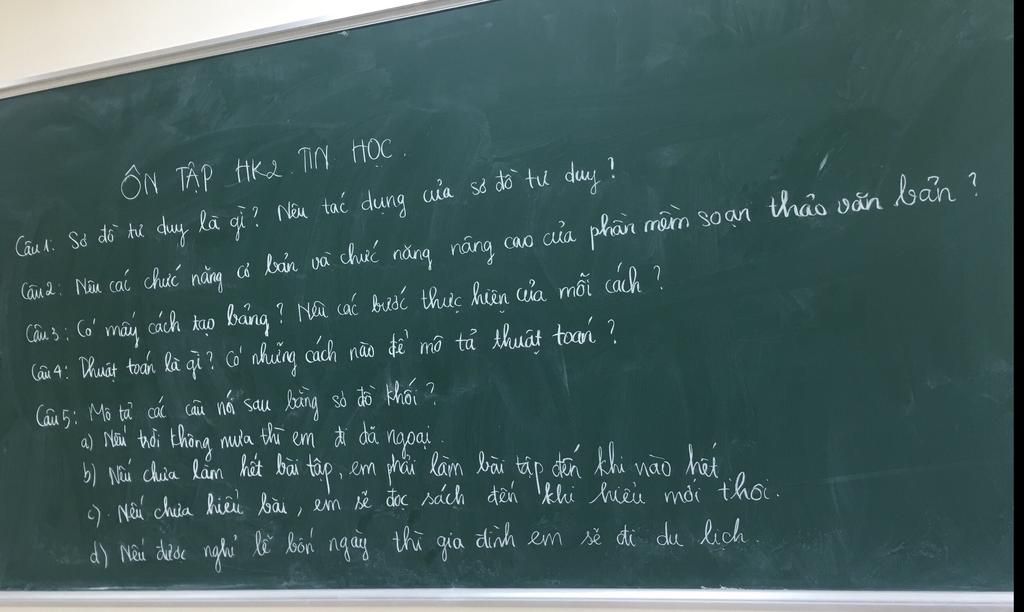 ÔN TẬP HK2 TIN HỌC.
Câu 1: Sơ đồ tư duy là gì? Nêu tác dụng của sơ đồ tư duy?
Câu 2: Nêu các chức năng cơ bản và chức năng nâng cao của phần mềm soạn thảo văn bản?
Câu 3: Có mấy cách tạo bảng? Nêu các bước thực hiện của mỗi cách?
Câu 4: Thuật toán là gì? Có những cách nào để mô tả thuật toán?
Câu 5: Mô tả các câu nói sau bằng sơ đồ khối?
a) Nếu trời không mưa thì em đi dã ngoại.
b) Nếu chưa làm hết bài tập, em phải làm bài tập đến khi nào hết.
c) Nếu chưa hiểu bài, em sẽ đọc sách đến khi hiểu mới thôi.
d) Nếu được nghỉ lễ bốn ngày thì gia đình em sẽ đi du lịch.